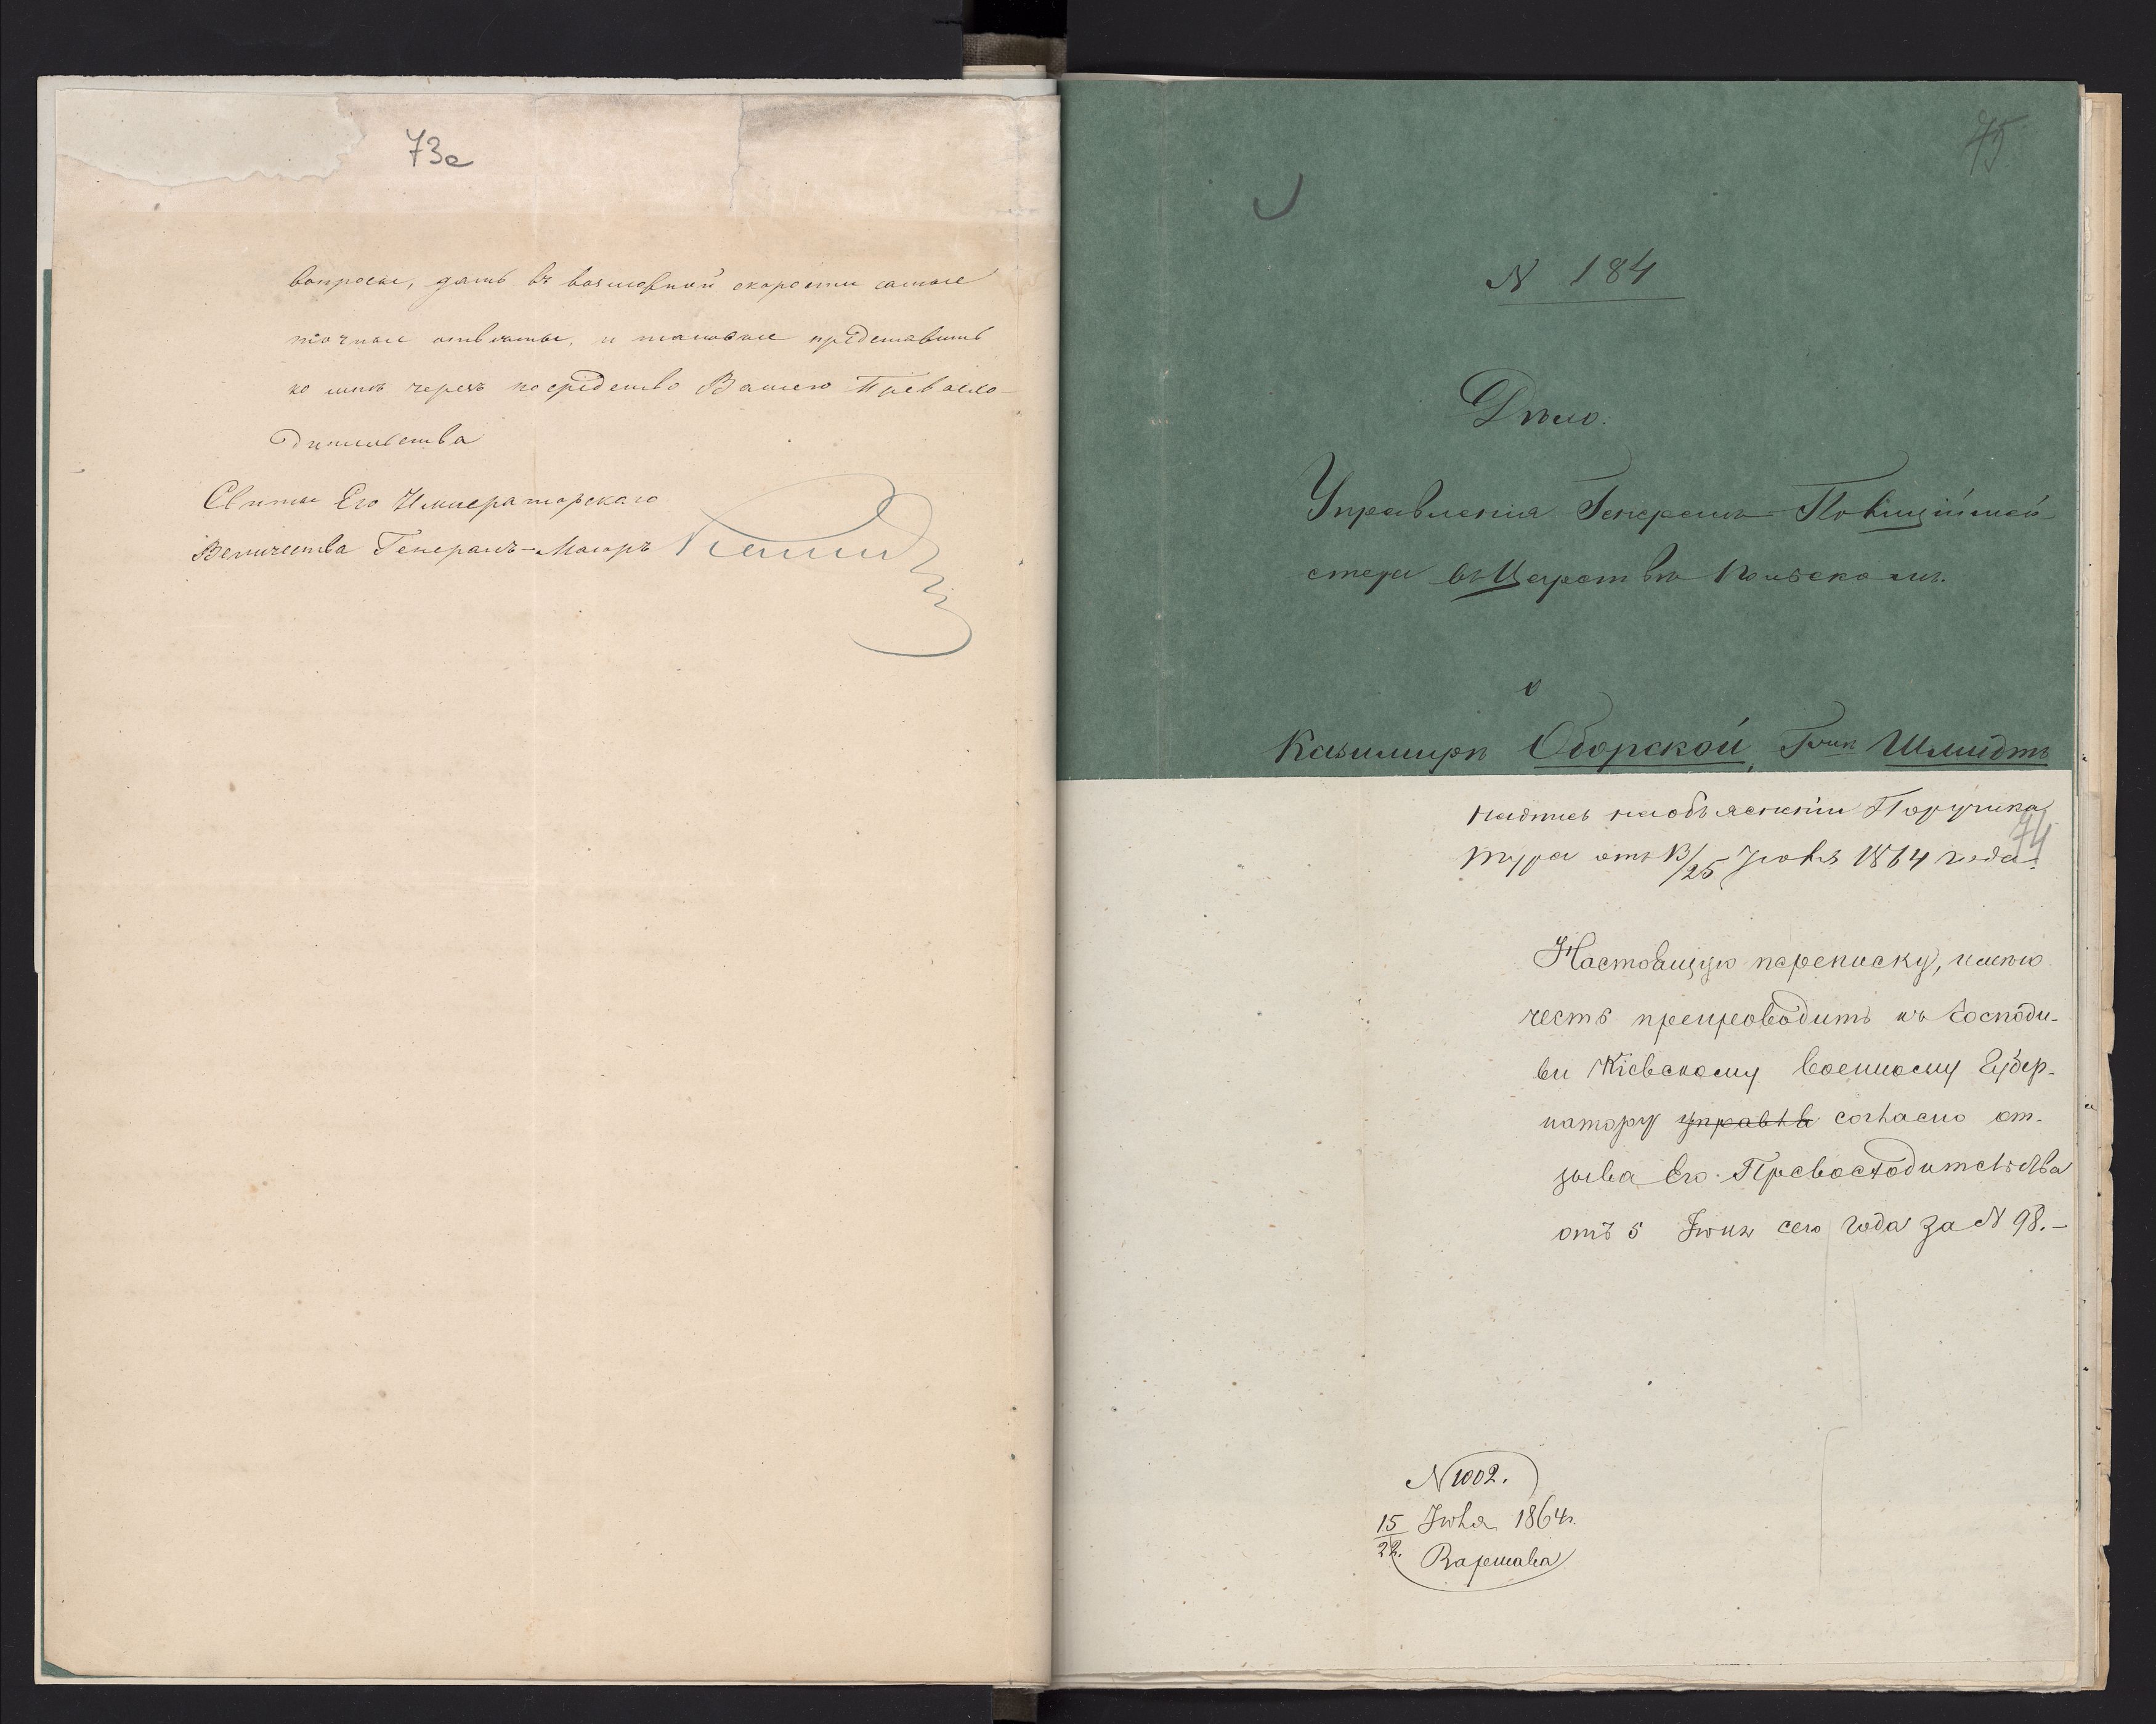 73а
вопросы, дать въ возможной скорости самые
точные отвѣты, и таковые представить
ко мнѣ черезъ посредство Вашего Превосхо-
дительства
Свиты Его Императорскаго
Величества Генералъ-Маіоръ
75
N 184
Дѣло.
Управленія Генералъ-Полиціймей-
стера въ Царствѣ Польскомъ.
о
Казимирѣ Оборской, Шмидтъ
Надпись на объясненіи Поручика
74
Тура отъ 13/25 Іюля 1864 года.
Настоящую переписку, имѣю
честь препроводить къ Господи-
ну Кіевскому Военному Губер-
натору управля согласно от-
зыва Его Превосходительства
отъ 5 Іюня сего года за N 98.-
N 1002.
15 Іюля 1864 г.
Варшава